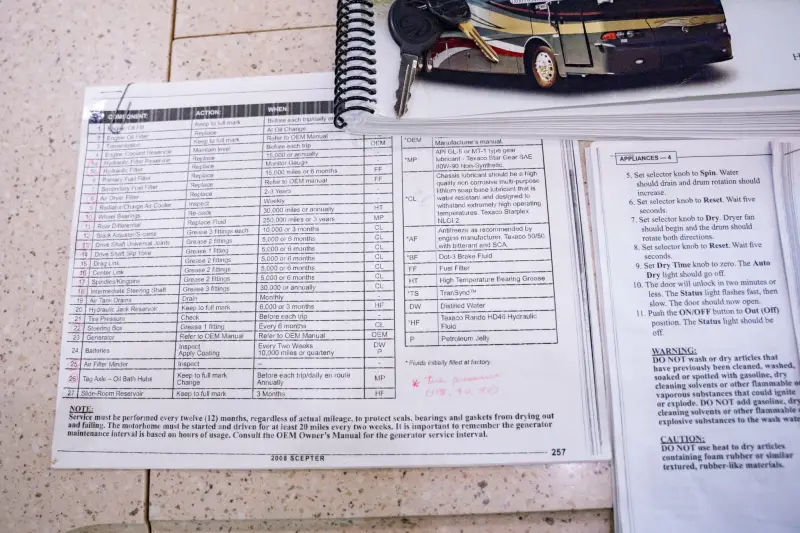 COMPONENT: ACTION: WHEN:
1 Engine Oil Fill Keep to full mark Before each trip/daily en
2 Engine Oil Filter Replace At Oil Change
3 Transmission Keep to full mark Refer to OEM Manual OEM
4 Engine Coolant Reservoir Maintain level Before each trip
Hydraulic Filter Reservoir Replace 15,000 or annually
Hydraulic Filter Replace Monitor Gauge
6 Primary Fuel Filter Replace 15,000 miles or 6 months FF
7 Secondary Fuel Filter Replace Refer to OEM manual FF
8 Air Dryer Filter Replace 2-3 Years
9 Radiator/Charge Air Cooler Inspect Weekly
10 Wheel Bearings 30,000 miles or annually HT
11 Rear Differential Replace Fluid 250,000 miles or 3 years MP
12 Slack Adjusters/S-cams Grease 2 fittings each 10,000 or 3 months CL
13 Drive Shaft Universal Joints Grease 2 fittings 5,000 or 6 months CL
14 Drive Shaft Slip Yoke Grease 1 fitting 5,000 or 6 months CL
15 Drag Link Grease 2 fittings 5,000 or 6 months CL
16 Center Link Grease 2 fittings 5,000 or 6 months CL
17 Spindles/Kingpins Grease 2 fittings 5,000 or 6 months CL
18 Intermediate Steering Shaft Grease 3 fittings 30,000 or annually CL
19 Air Tank Drains Drain Monthly
20 Hydraulic Jack Reservoir Keep to full mark 6,000 or 3 months HF
21 Tire Pressure Check Before each trip
22 Steering Box Grease 1 fitting Every 6 months CL
23 Generator Refer to OEM Manual Refer to OEM Manual OEM
24 Batteries Inspect Every Two Weeks DW
Apply Coating 10,000 miles or quarterly P
25 Air Filter Minder Inspect –
26 Tag Axle – Oil Bath Hubs Keep to full mark Before each trip/daily en route MP
Change Annually
27 Slide-Room Reservoir Keep to full mark 3 Months HF
*OEM Manufacturer's manual.
*MP API GL-5 or MT-1 type gear
lubricant - Texaco Star Gear SAE
80W-90 Non-Synthetic.
*CL Chassis lubricant should be a high
quality non corrosive multi-purpose
lithium soap base lubricant that is
water resistant and designed to
withstand extremely high operating
temperatures. Texaco Starplex
NLGI 2
*AF Antifreeze as recommended by
engine manufacturer. Texaco 50/50
with bitterant and SCA.
*BF Dot-3 Brake Fluid
FF Fuel Filter
HT High Temperature Bearing Grease
*TS TranSynd™
DW Distilled Water
*HF Texaco Rando HD46 Hydraulic
Fluid
P Petroleum Jelly
* Fluids initially filled at factory.
NOTE:
Service must be performed every twelve (12) months, regardless of actual mileage, to protect seals, bearings and gaskets from drying out
and failing. The motorhome must be started and driven for at least 20 miles every two weeks. It is important to remember the generator
maintenance interval is based on hours of usage. Consult the OEM Owner's Manual for the generator service interval.
2008 SCEPTER 257
APPLIANCES — 4
5. Set selector knob to Spin. Water
should drain and drum rotation should
increase.
6. Set selector knob to Reset. Wait five
seconds.
7. Set selector knob to Dry. Dryer fan
should begin and the drum should
rotate both directions.
8. Set selector knob to Reset. Wait five
seconds.
9. Set Dry Time knob to zero. The Auto
Dry light should go off.
10. The door will unlock in two minutes or
less. The Status light flashes fast, then
slow. The door should now open.
11. Push the ON/OFF button to Out (Off)
position. The Status light should be
off.
WARNING:
DO NOT wash or dry articles that
have previously been cleaned, washed,
soaked or spotted with gasoline, dry
cleaning solvents or other flammable o
vaporous substances that could ignite
or explode. DO NOT add gasoline, dry
cleaning solvents or other flammable
explosive substances to the wash wate
CAUTION:
DO NOT use heat to dry articles
containing foam rubber or similar
textured, rubber-like materials.